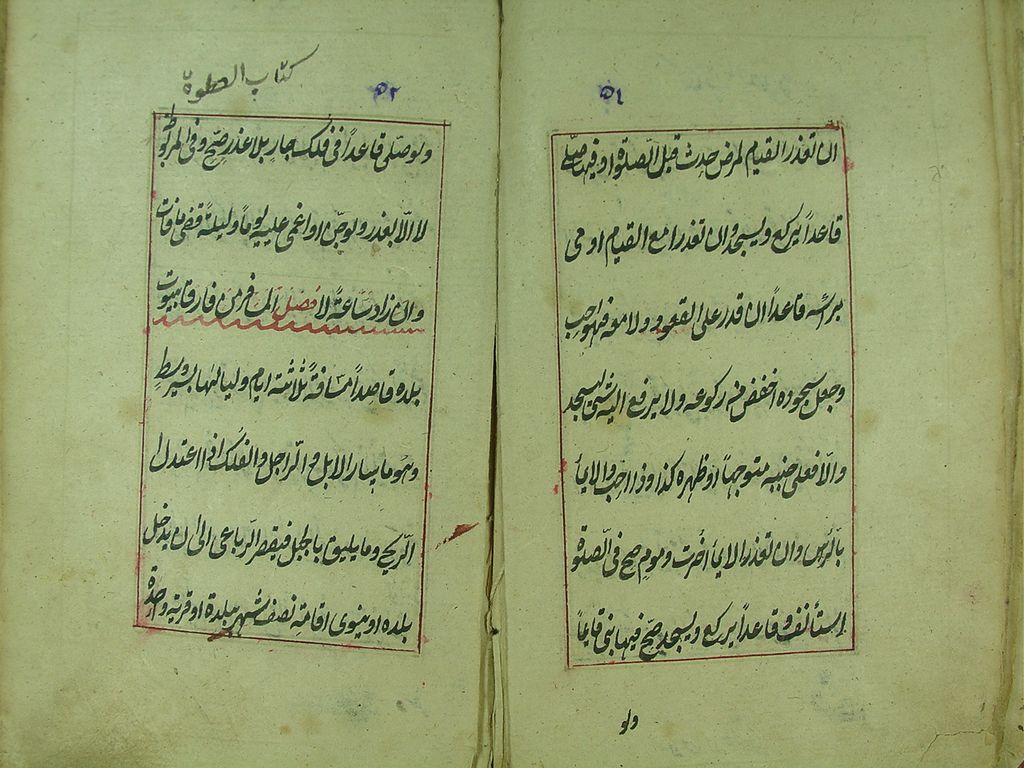 ٥١
ان تعذر القيام لمرض حدث قبل الصلوة او فيها صلى
قاعداً يركع ويسجد وان تعذرا مع القيام اومى
برأسه قاعداً ان قدر على القعود ولا معه فهو احب
وجعل سجوده اخفض من ركوعه ولا يرفع اليه شئ ليسجد
والا فعلى جنبه متوجهاً او ظهره كذا وذا احب والايمأ
بالرأس وان تعذر الايمأ اخرت وموم صح فى الصلوة
استأنف وقاعداً يركع ويسجد صح فيها بنى قائماً
ولو
٥٢
كتاب الصلوة
ولو صلى قاعداً فى فلك جار بلا عذر صح وفى المربوط
لا الا بعذر ولو جن او اغمى عليه يوماً وليلة قضى ما فات
وان زاد ساعة لا فصل المسافر من فارق بيوت
بلده قاصداً مسافة ثلاثة ايام ولياليها بسير وسط
وهو ما سار الابل والراجل والفلك اذا اعتدل
الريح وما يليق بالجبل فيقصر الرباعى الى ان يدخل
بلده او ينوى اقامة نصف شهر ببلدة او قرية واحدة